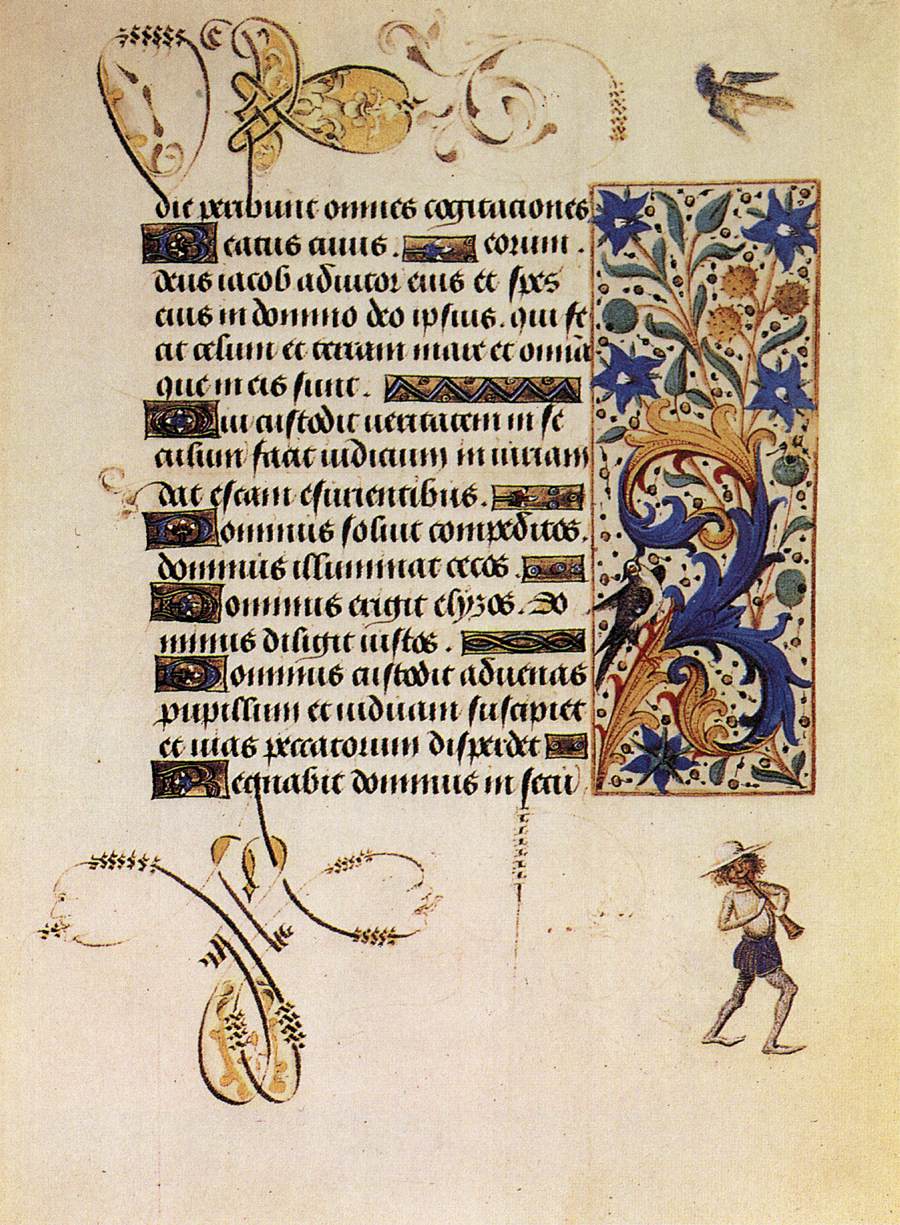 die peribunt omnes cogitationes
Beatus cuius . eorum .
deus iacob adiutor eius et spes
eius in domino deo ipsius . qui fe
cit celum et terram mare et omnia
que in eis sunt .
Qui custodit ueritatem in se
culum facit iudicium in iuriam
dat escam esurientibus .
Dominus soluit compeditos .
dominus illuminat cecos .
Dominus erigit elyzos . Do
minus diligit iustos .
Dominus custodit aduenas
pupillum et uiduam suscipiet
et uias peccatorum disperdet
Regnabit dominus in secu